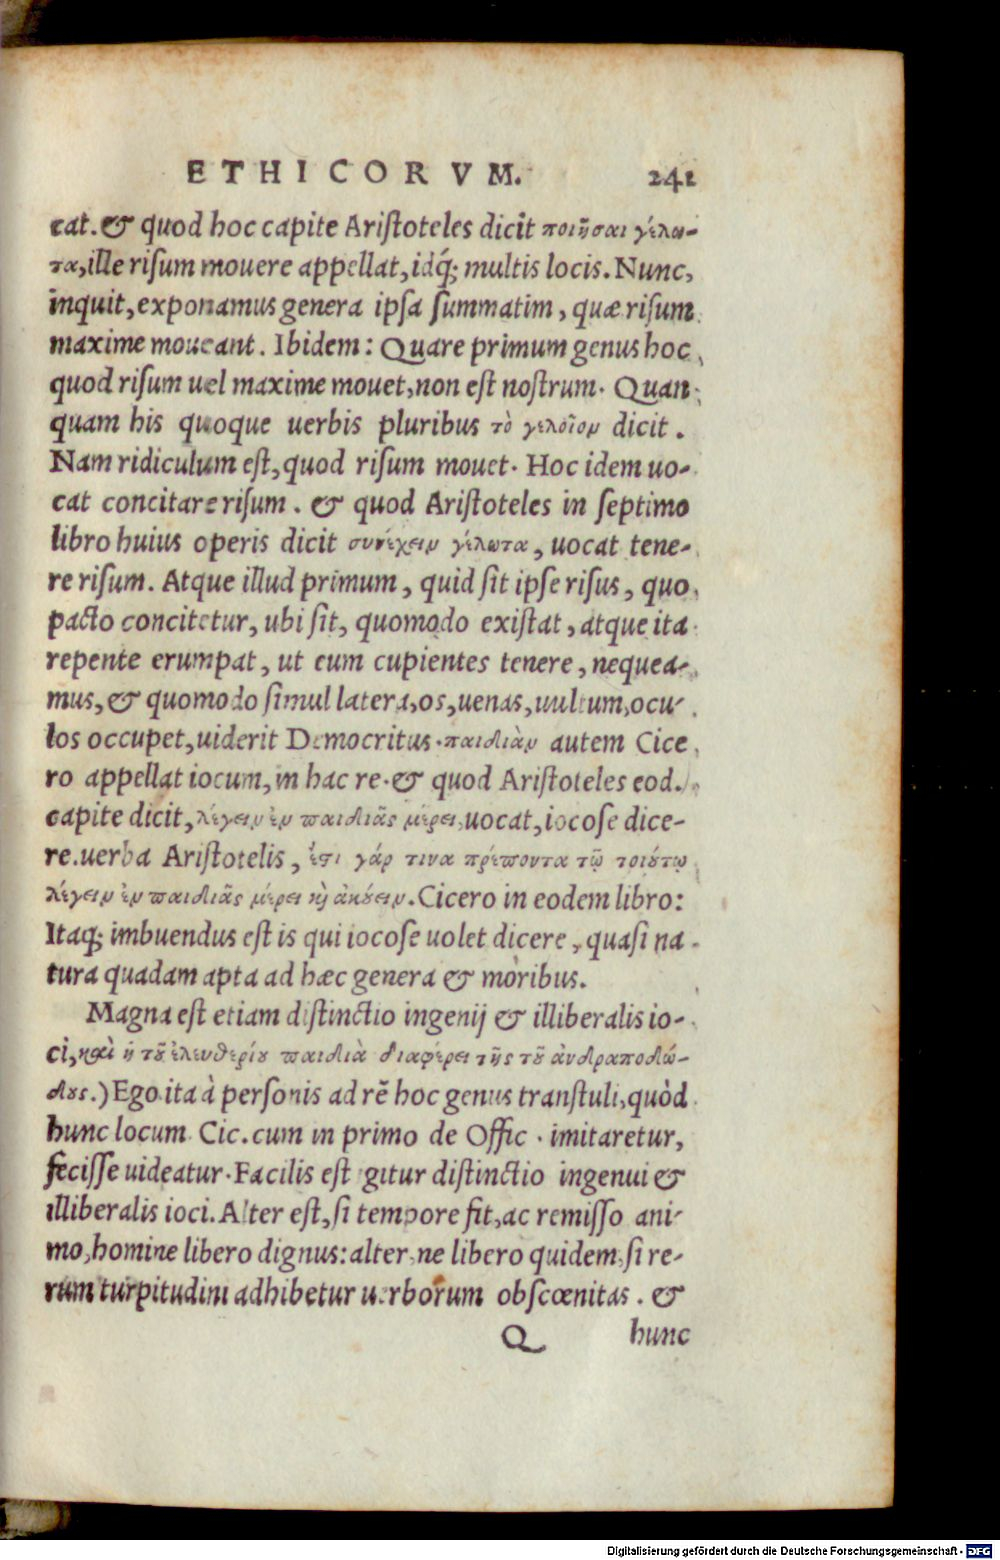 ETHICORVM. 241
cat. & quod hoc capite Aristoteles dicit ποιῆσαι γέλω-
τα, ille risum mouere appellat, idq́; multis locis. Nunc,
inquit, exponamus genera ipsa summatim, quæ risum
maxime moueant. Ibidem: Quare primum genus hoc
quod risum uel maxime mouet, non est nostrum. Quan-
quam his quoque uerbis pluribus τὸ γελοῖον dicit.
Nam ridiculum est, quod risum mouet. Hoc idem uo-
cat concitare risum. & quod Aristoteles in septimo
libro huius operis dicit συνέχειν γέλωτα, uocat tene-
re risum. Atque illud primum, quid sit ipse risus, quo
pacto concitetur, ubi sit, quomodo existat, atque ita
repente erumpat, ut eum cupientes tenere, nequea-
mus, & quomodo simul latera, os, uenas, uultum, ocu-
los occupet, uiderit Democritus. παιδιὰν autem Cice
ro appellat iocum, in hac re. & quod Aristoteles eod.
capite dicit, λέγειν ἐν παιδιᾶς μέρει, uocat, iocose dice-
re. uerba Aristotelis, ἔστι γάρ τινα πρέποντα τῷ τοιούτῳ
λέγειν ἐν παιδιᾶς μέρει καὶ ἀκούειν. Cicero in eodem libro:
Itaq; imbuendus est is qui iocose uolet dicere, quasi na-
tura quadam apta ad hæc genera & moribus.
Magna est etiam distinctio ingenij & illiberalis io-
ci, καὶ ἡ τοῦ ἐλευθερίου παιδιὰ διαφέρει τῆς τοῦ ἀνδραποδώ-
δους.) Ego ita à personis ad rē hoc genus transtuli, quòd
hunc locum Cic. cum in primo de Offic. imitaretur,
fecisse uideatur. Facilis est igitur distinctio ingenui &
illiberalis ioci. Alter est, si tempore fit, ac remisso ani-
mo, homine libero dignus: alter ne libero quidem, si re-
rum turpitudini adhibetur uerborum obscœnitas. &
Q hunc
Digitalisierung gefördert durch die Deutsche Forschungsgemeinschaft - DFG